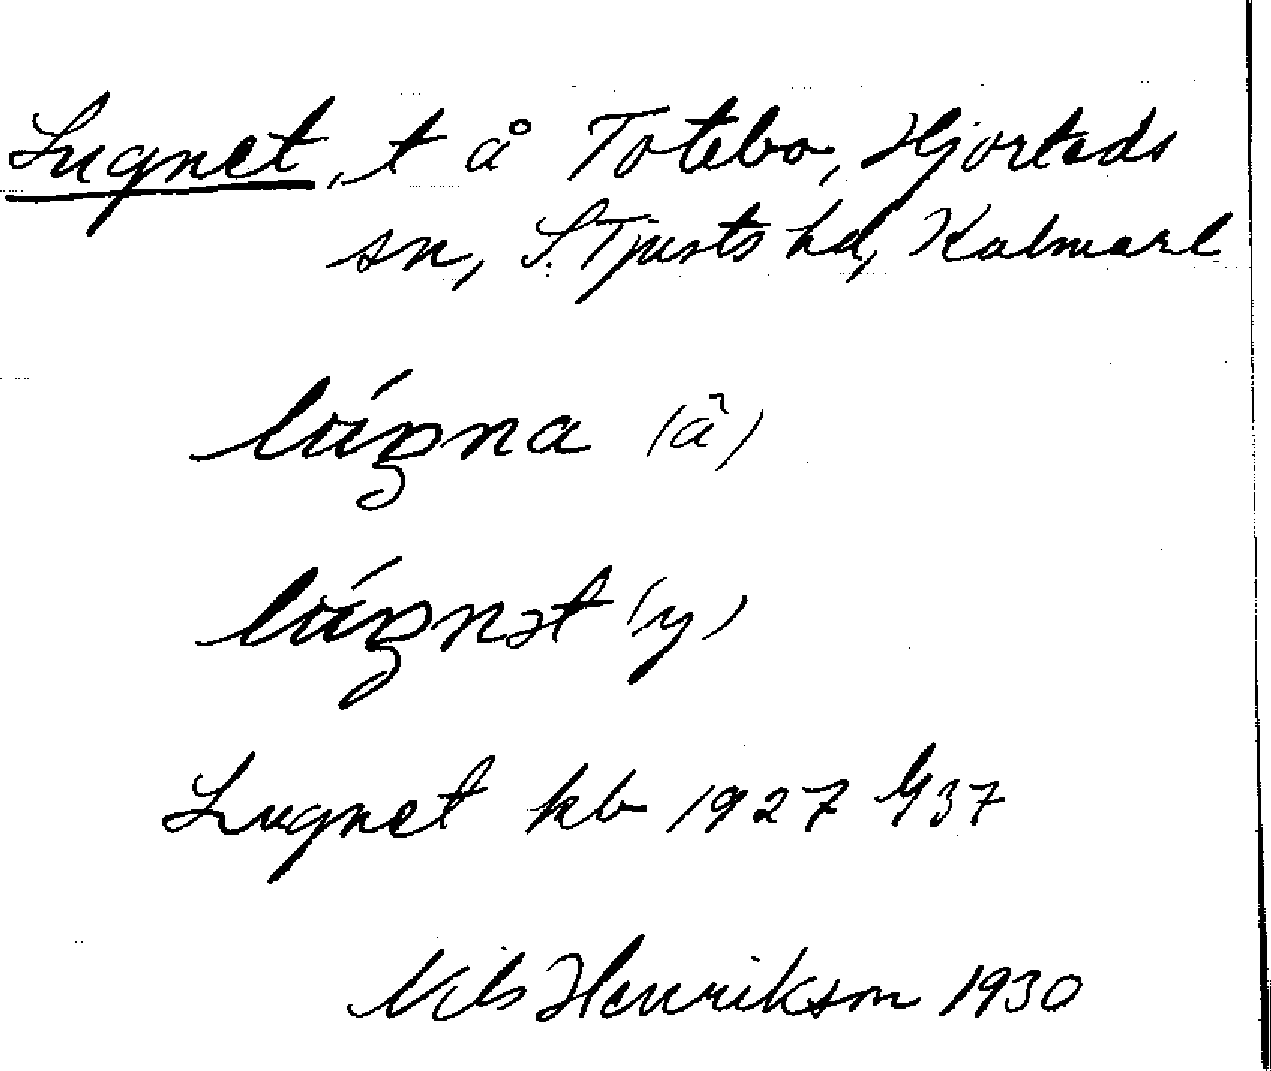 Lugnet, t å Totebo, Hjorteds
sn, S. Tjusts hd, Kalmarl
lúŋna (ä)
lúŋnət (y)
Lugnet kb 1927 937
Nils Henrikson 1930